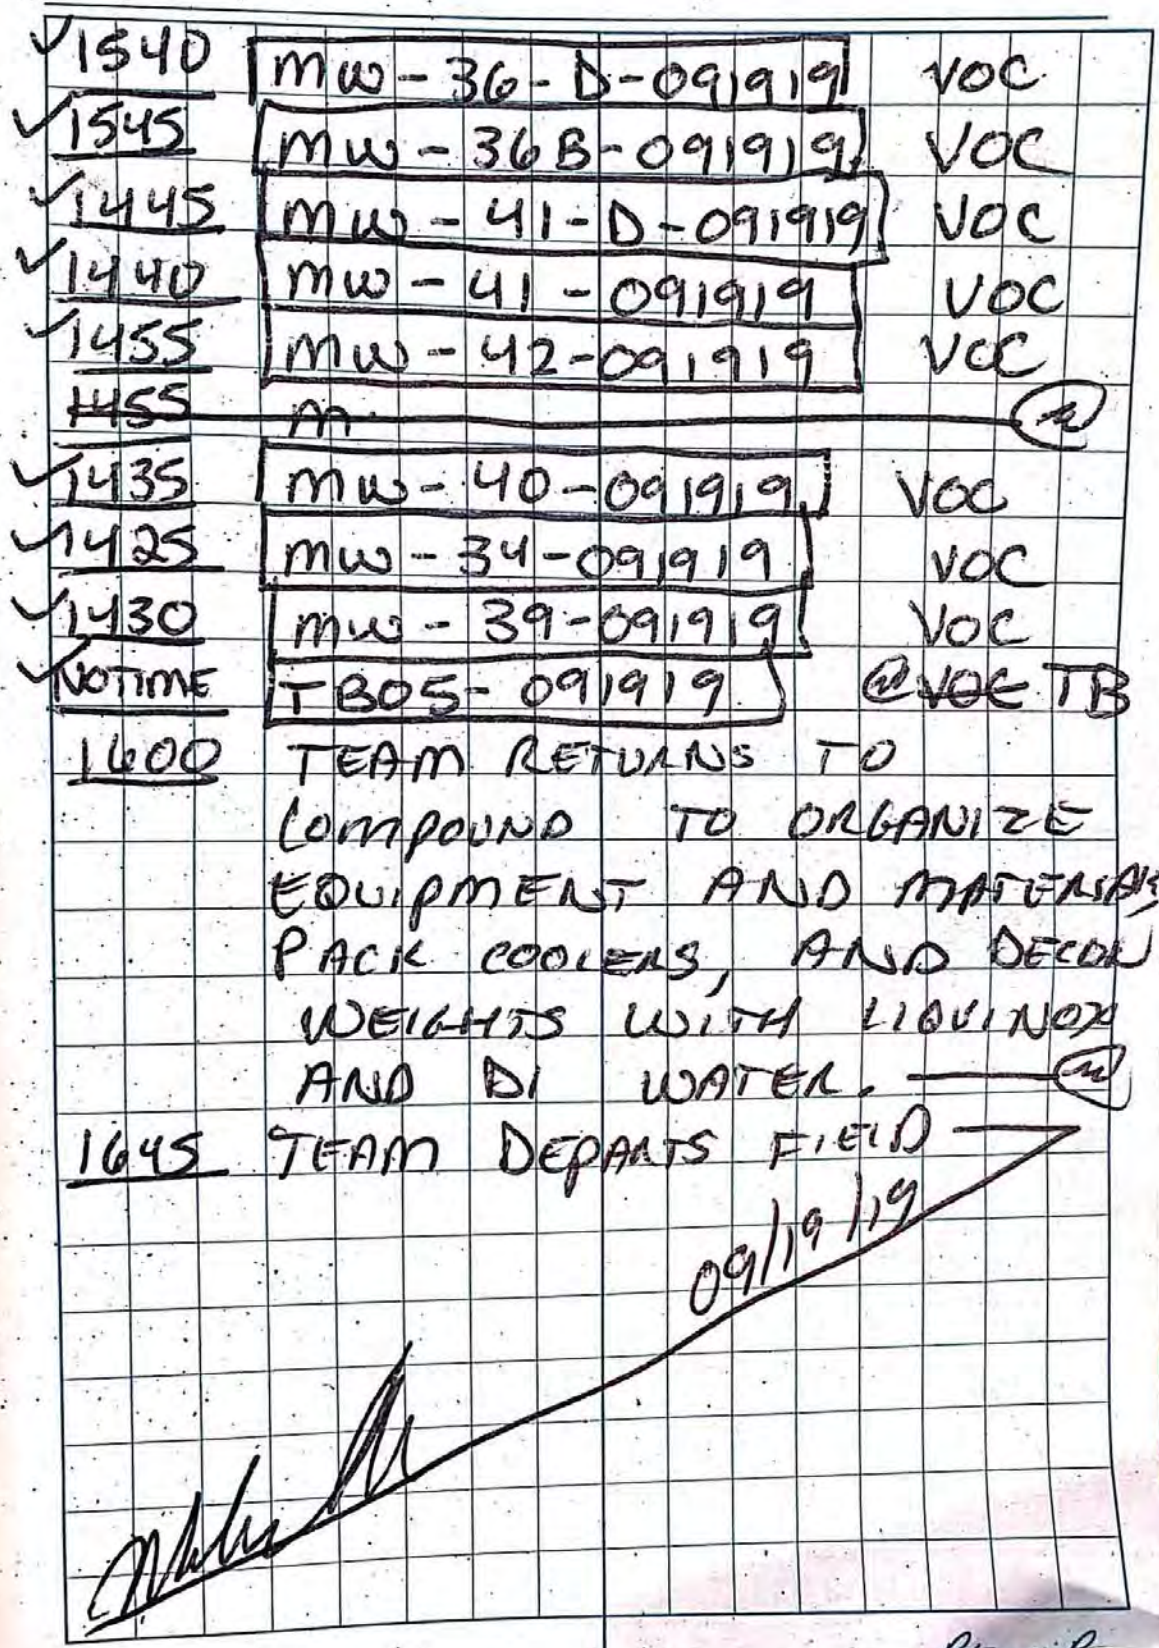 ✓1540 MW-36-D-091919 VOC
✓1545 MW-36B-091919 VOC
✓1445 MW-41-D-091919 VOC
✓1440 MW-41-091919 VOC
✓1455 MW-42-091919 VOC
1455 M
✓1435 MW-40-091919 VOC
✓1425 MW-34-091919 VOC
✓1430 MW-39-091919 VOC
✓NOTIME TB05-091919 VOC TB
1600 TEAM RETURNS TO
COMPOUND TO ORGANIZE
EQUIPMENT AND MATERIALS,
PACK COOLERS, AND DECON
WEIGHTS WITH LIQUINOX
AND DI WATER.
1645 TEAM DEPARTS FIELD
09/19/19